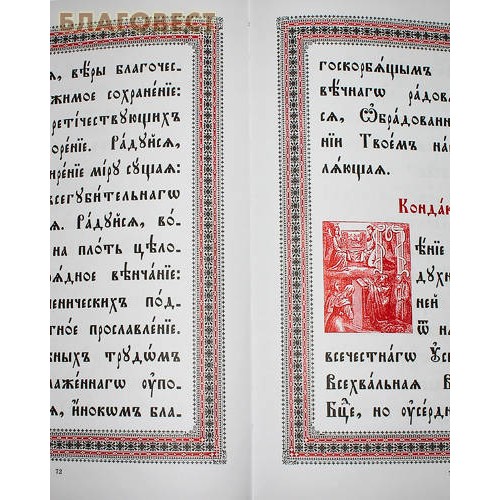 БЛАГОВЕСТ
я, вѣ́ры благочес-
жимое сохране́нїе:
ретїчествующихъ
оре́нїе. Ра́дуйся,
ире́нїе мі́ру сущая:
всегуби́тельнагѡ
я. Ра́дуйся, во́-
на пло́ть цѣ́ло-
ря́дное вѣнча́нїе:
ченическихъ по́д-
тное прославле́нїе.
жныхъ трудѡ́мъ
лаже́ннагѡ оупо-
я, и҆́нокѡмъ бла-
72
госкорбѧщымъ
вѣ́чнагѡ ра́дова
сѧ, Ѡбра́дованн
нїи Твое́мъ на́с
лѧющая.
Конда́к
ѣ́нїе
духн
ней
ѿ на
всече́стнагѡ Оу҆сп
Всехва́льная В
Бцⷣе, но оу҆се́рдн